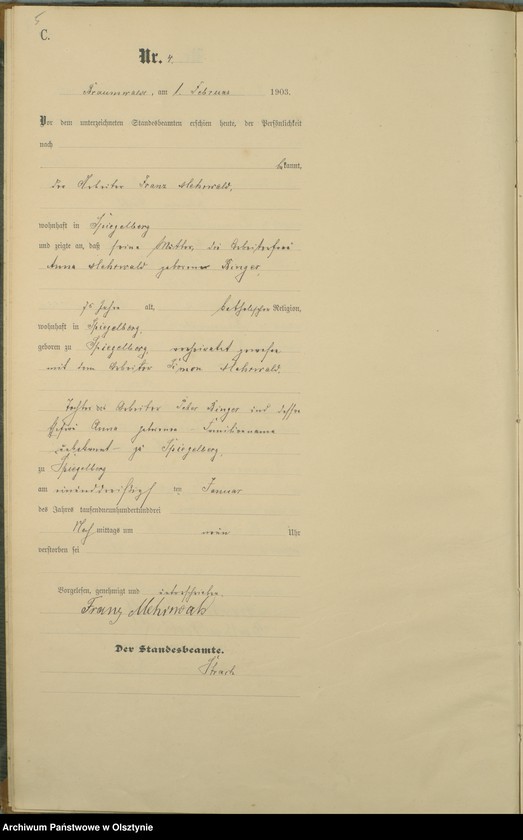 C.
Nr. 4.
Braunswalde, am 1. Februar 1903.
Vor dem unterzeichneten Standesbeamten erschien heute, der Persönlichkeit
nach
bekannt,
der Arbeiter Franz Mehrwald,
wohnhaft in Spiegelberg
und zeigte an, daß seine Mutter, die Arbeiterfrau
Anna Mehrwald geborene Binger,
75 Jahre alt, katholischer Religion,
wohnhaft in Spiegelberg,
geboren zu Spiegelberg, verheiratet gewesen
mit dem Arbeiter Simon Mehrwald.
Tochter des Arbeiter Peter Binger und dessen
Ehefrau Anna geborene Familienname
unbekannt zu Spiegelberg,
zu Spiegelberg
am einunddreißigsten Januar
des Jahres tausendneunhundertunddrei
Nachmittags um neun Uhr
verstorben sei
Vorgelesen, genehmigt und unterschrieben.
Franz Mehrwald
Der Standesbeamte.
Archiwum Państwowe w Olsztynie